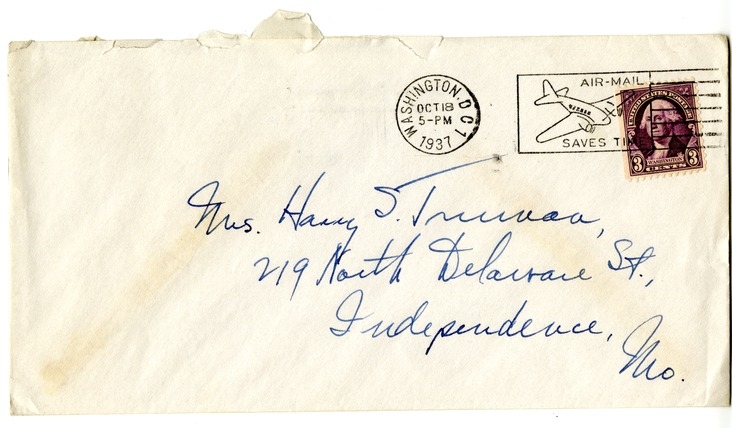 WASHINGTON, D C 1
OCT 18
5-PM
1937
AIR-MAIL
SAVES TIME
UNITED STATES POSTAGE
3 WASHINGTON 3
CENTS
Mrs. Harry S. Truman,
219 North Delaware St.,
Independence,
Mo.